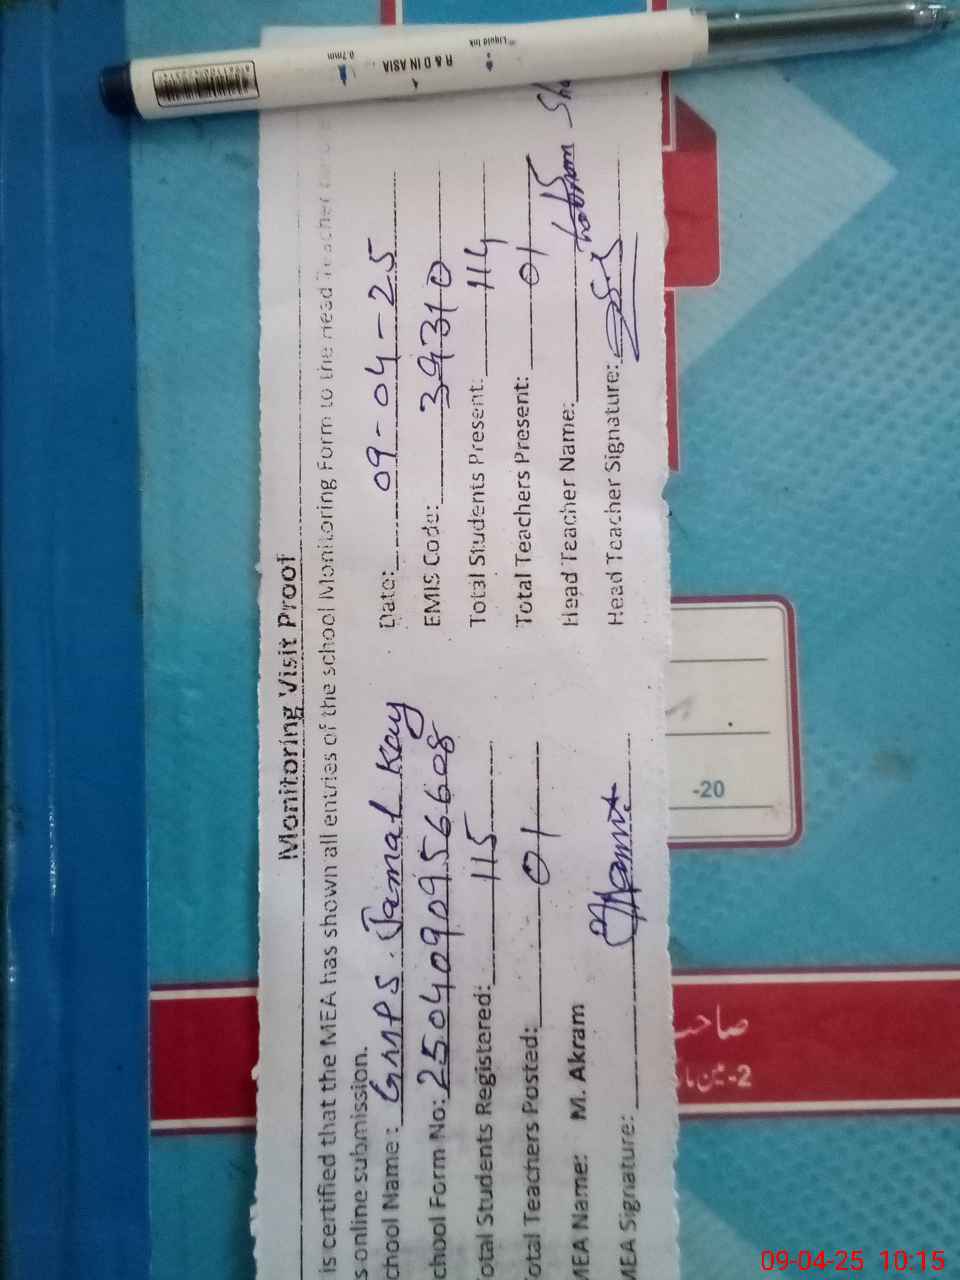 Monitoring Visit Proof
is certified that the MEA has shown all entries of the school Monitoring Form to the head Teacher
s online submission.
chool Name: GMPS. Jamal Kay
Date: 09-04-25
chool Form No: 25040909566 08
EMIS Code: 39310
otal Students Registered: 115
Total Students Present: 114
otal Teachers Posted: 01
Total Teachers Present: 01
MEA Name: M. Akram
Head Teacher Name: Shabnam Sha
MEA Signature:
Head Teacher Signature:
Liquid Ink
0.7mm
R & D IN ASIA
-20
صاحب
2-مین
09-04-25 10:15